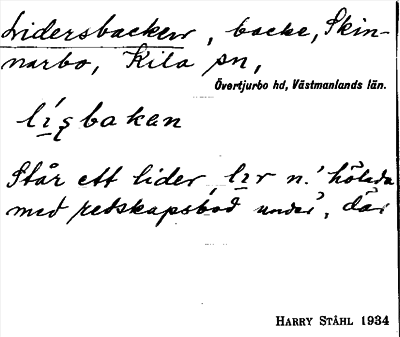 Lidersbacken, backe, Skin-
narbo, Kila sn,
Övertjurbo hd, Västmanlands län.
Står ett lider, n. 'hölada
med redskapsbod under', där
HARRY STÅHL 1934